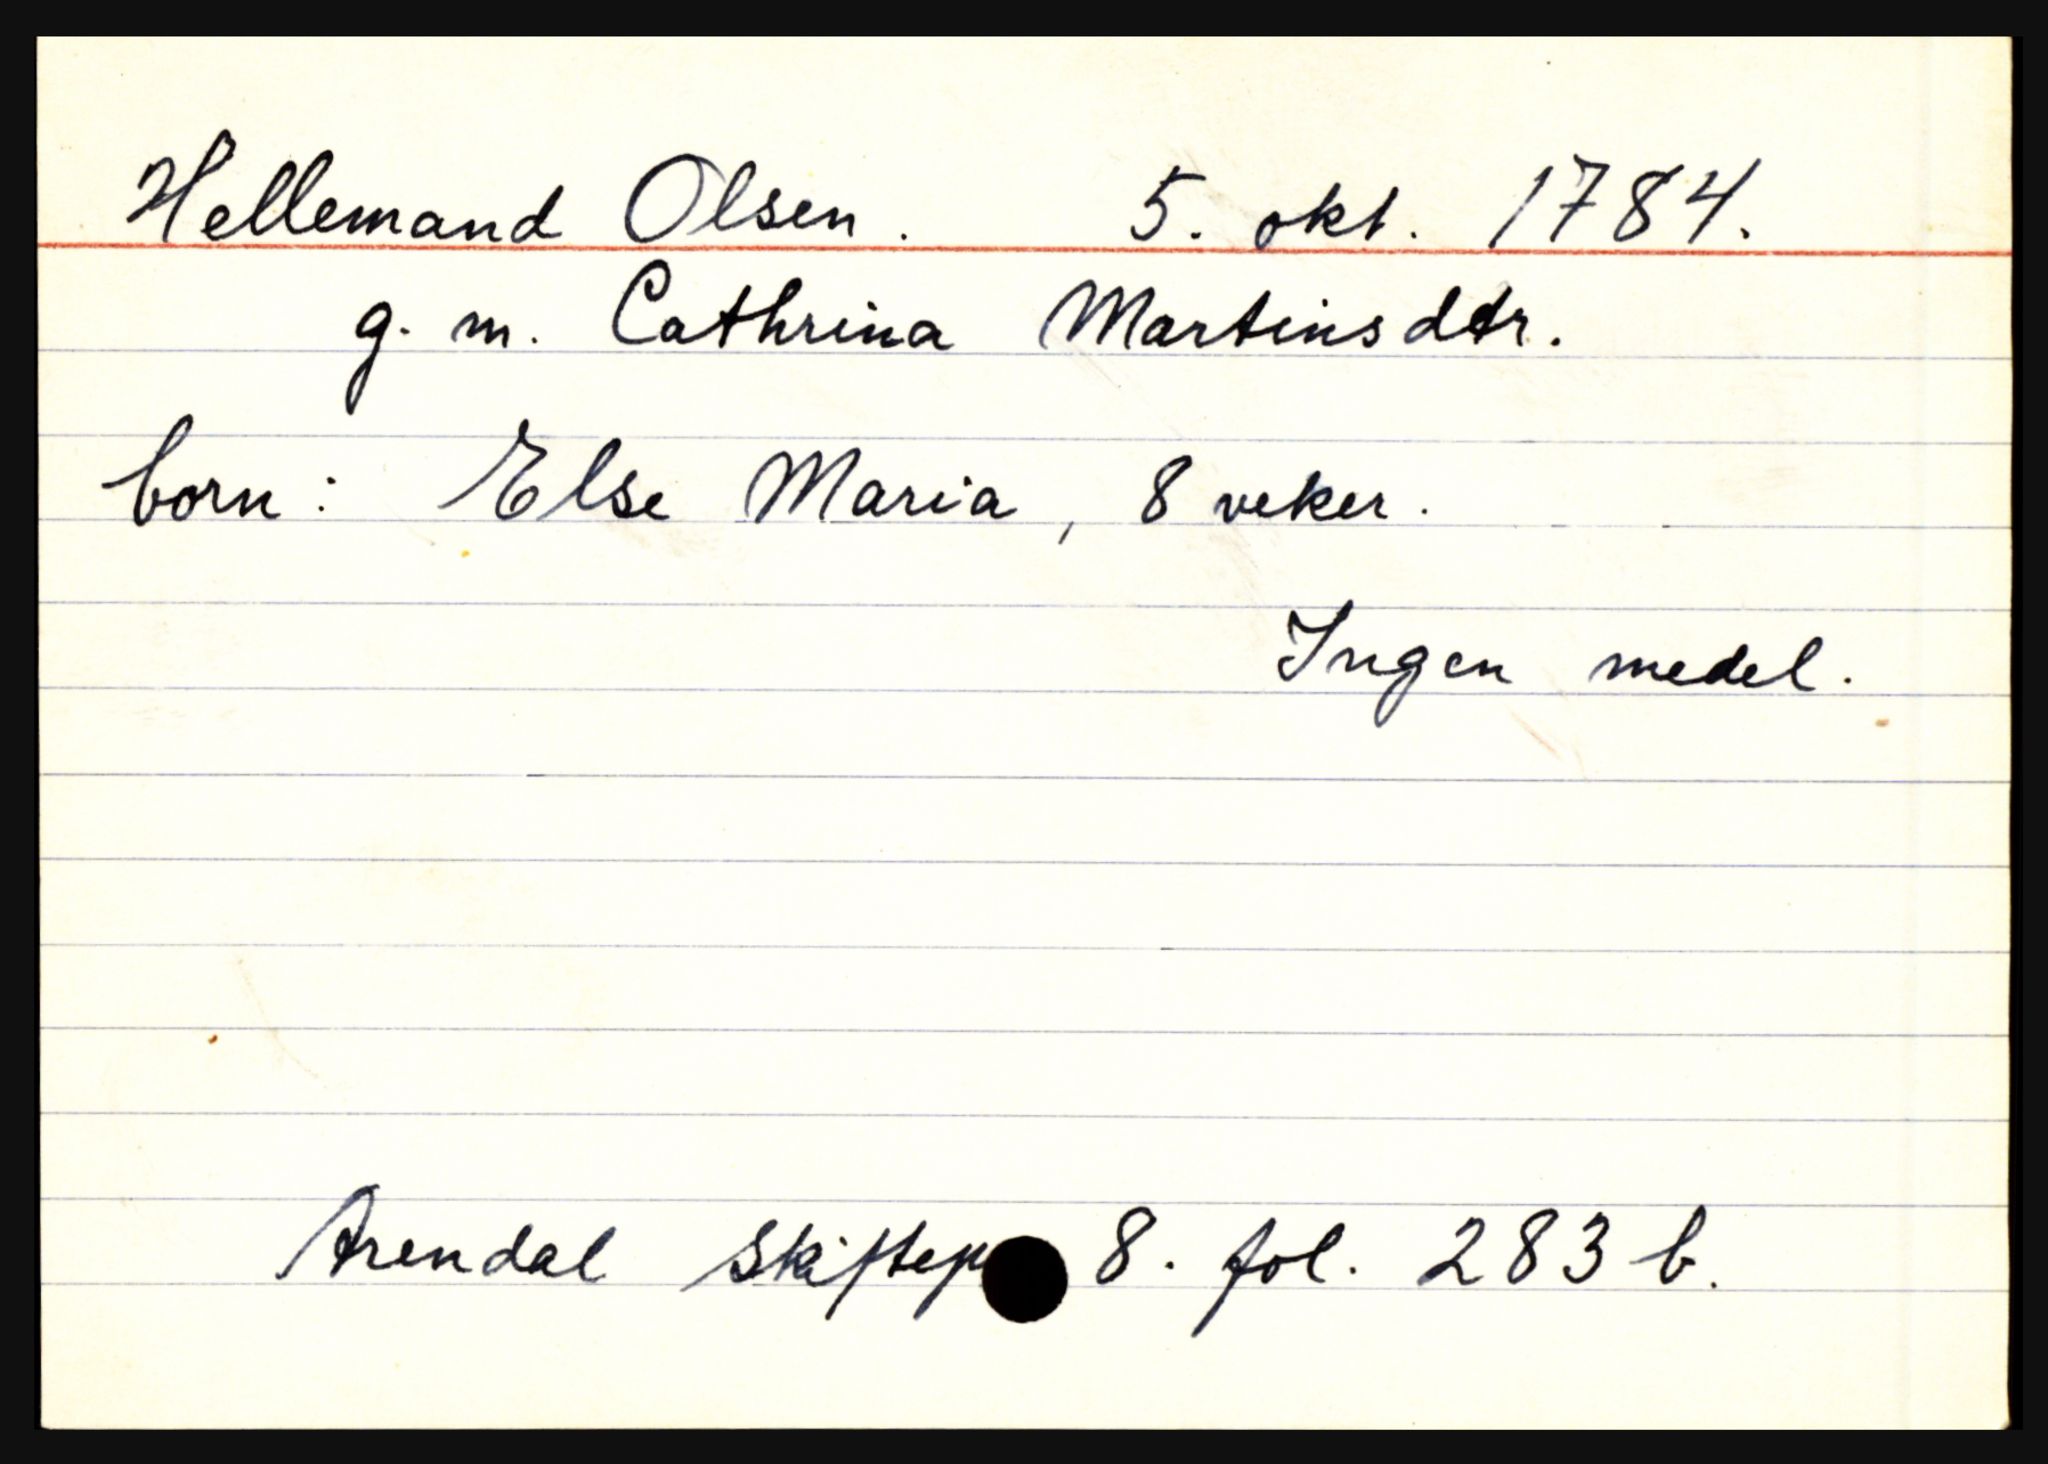 Hellemand Olsen. 5. okt. 1784.
g. m. Cathrina Martinsdtr.
born: Else Maria, 8 veker.
Ingen medel.
Arendal skiftep 8. fol. 283 b.